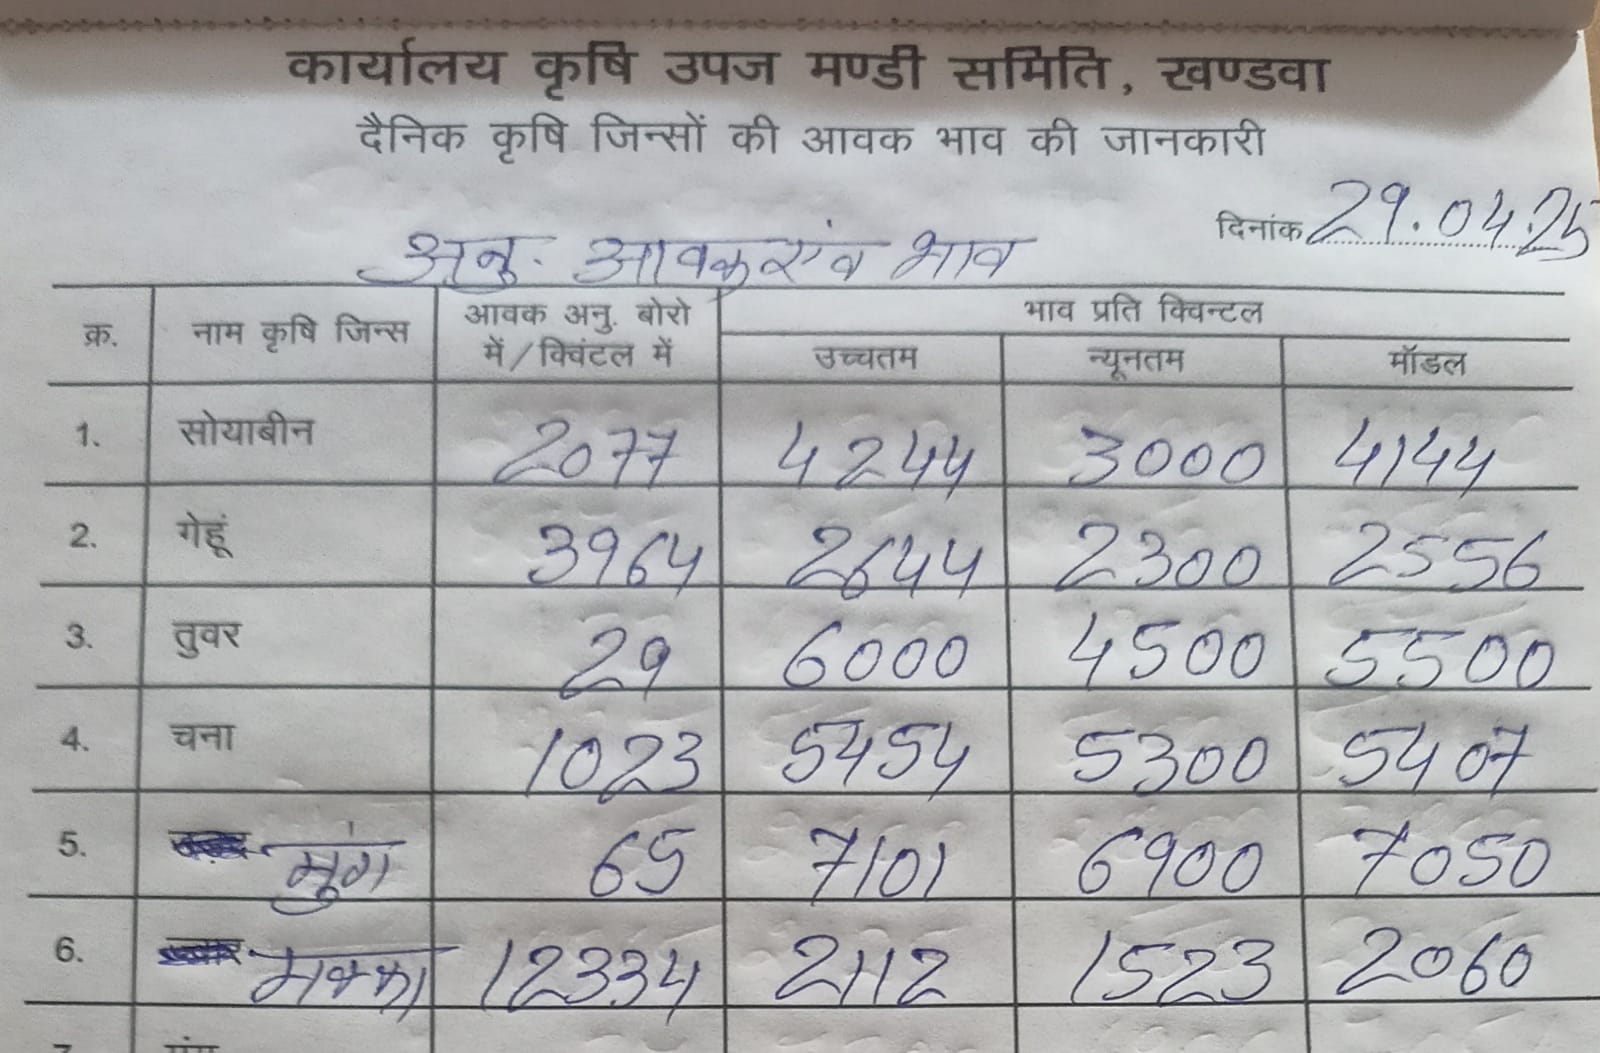 कार्यालय कृषि उपज मण्डी समिति, खण्डवा
दैनिक कृषि जिन्सों की आवक भाव की जानकारी
दिनांक 29.04.25
अनु. आवक एंव भाव
क्र. नाम कृषि जिन्स आवक अनु. बोरो में/क्विंटल में भाव प्रति क्विन्टल
उच्चतम न्यूनतम मॉडल
1. सोयाबीन 2077 4244 3000 4144
2. गेहूं 3964 2644 2300 2556
3. तुवर 29 6000 4500 5500
4. चना 1023 5454 5300 5407
5. मुंग 65 7101 6900 7050
6. मक्का 12334 2112 1523 2060